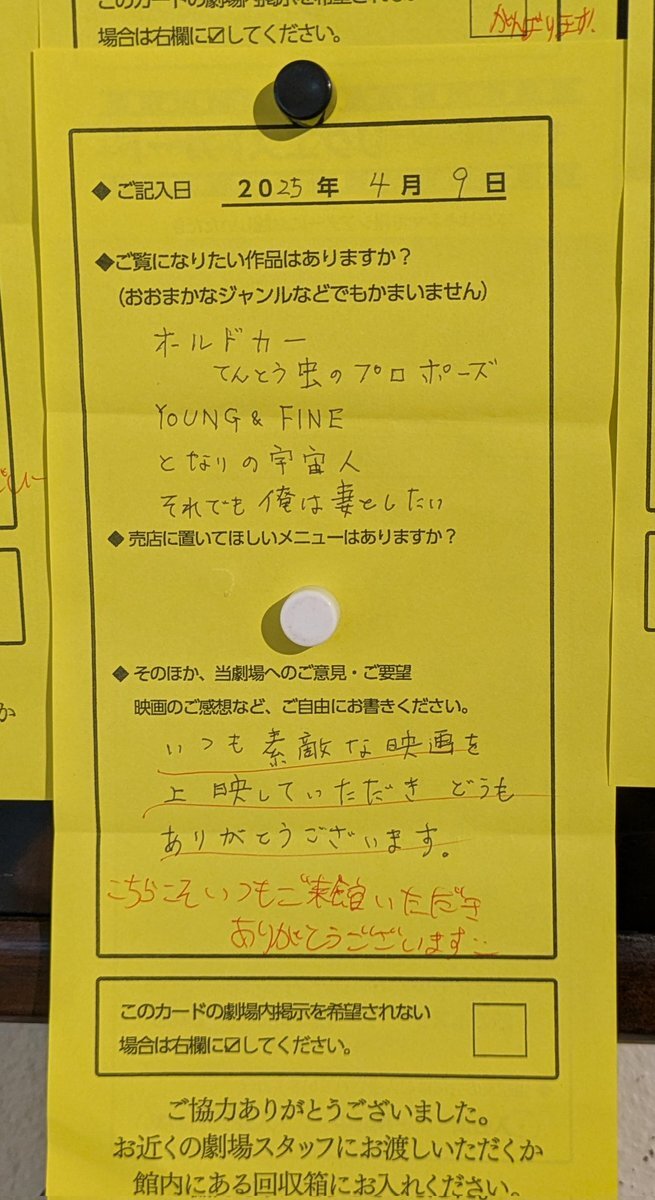 このカードの劇場内掲示を希望されない
場合は右欄に☑してください。
がんばります。
◆ ご記入日 2025年 4月 9日
◆ご覧になりたい作品はありますか？
（おおまかなジャンルなどでもかまいません）
オールドカー
てんとう虫のプロポーズ
YOUNG & FINE
となりの宇宙人
それでも俺は妻としたい
◆ 売店に置いてほしいメニューはありますか？
◆ そのほか、当劇場へのご意見・ご要望
映画のご感想など、ご自由にお書きください。
いつも素敵な映画を
上映していただきどうも
ありがとうございます。
こちらこそいつもご来館いただき
ありがとうございます
このカードの劇場内掲示を希望されない
場合は右欄に☑してください。
ご協力ありがとうございました。
お近くの劇場スタッフにお渡しいただくか
館内にある回収箱にお入れください、